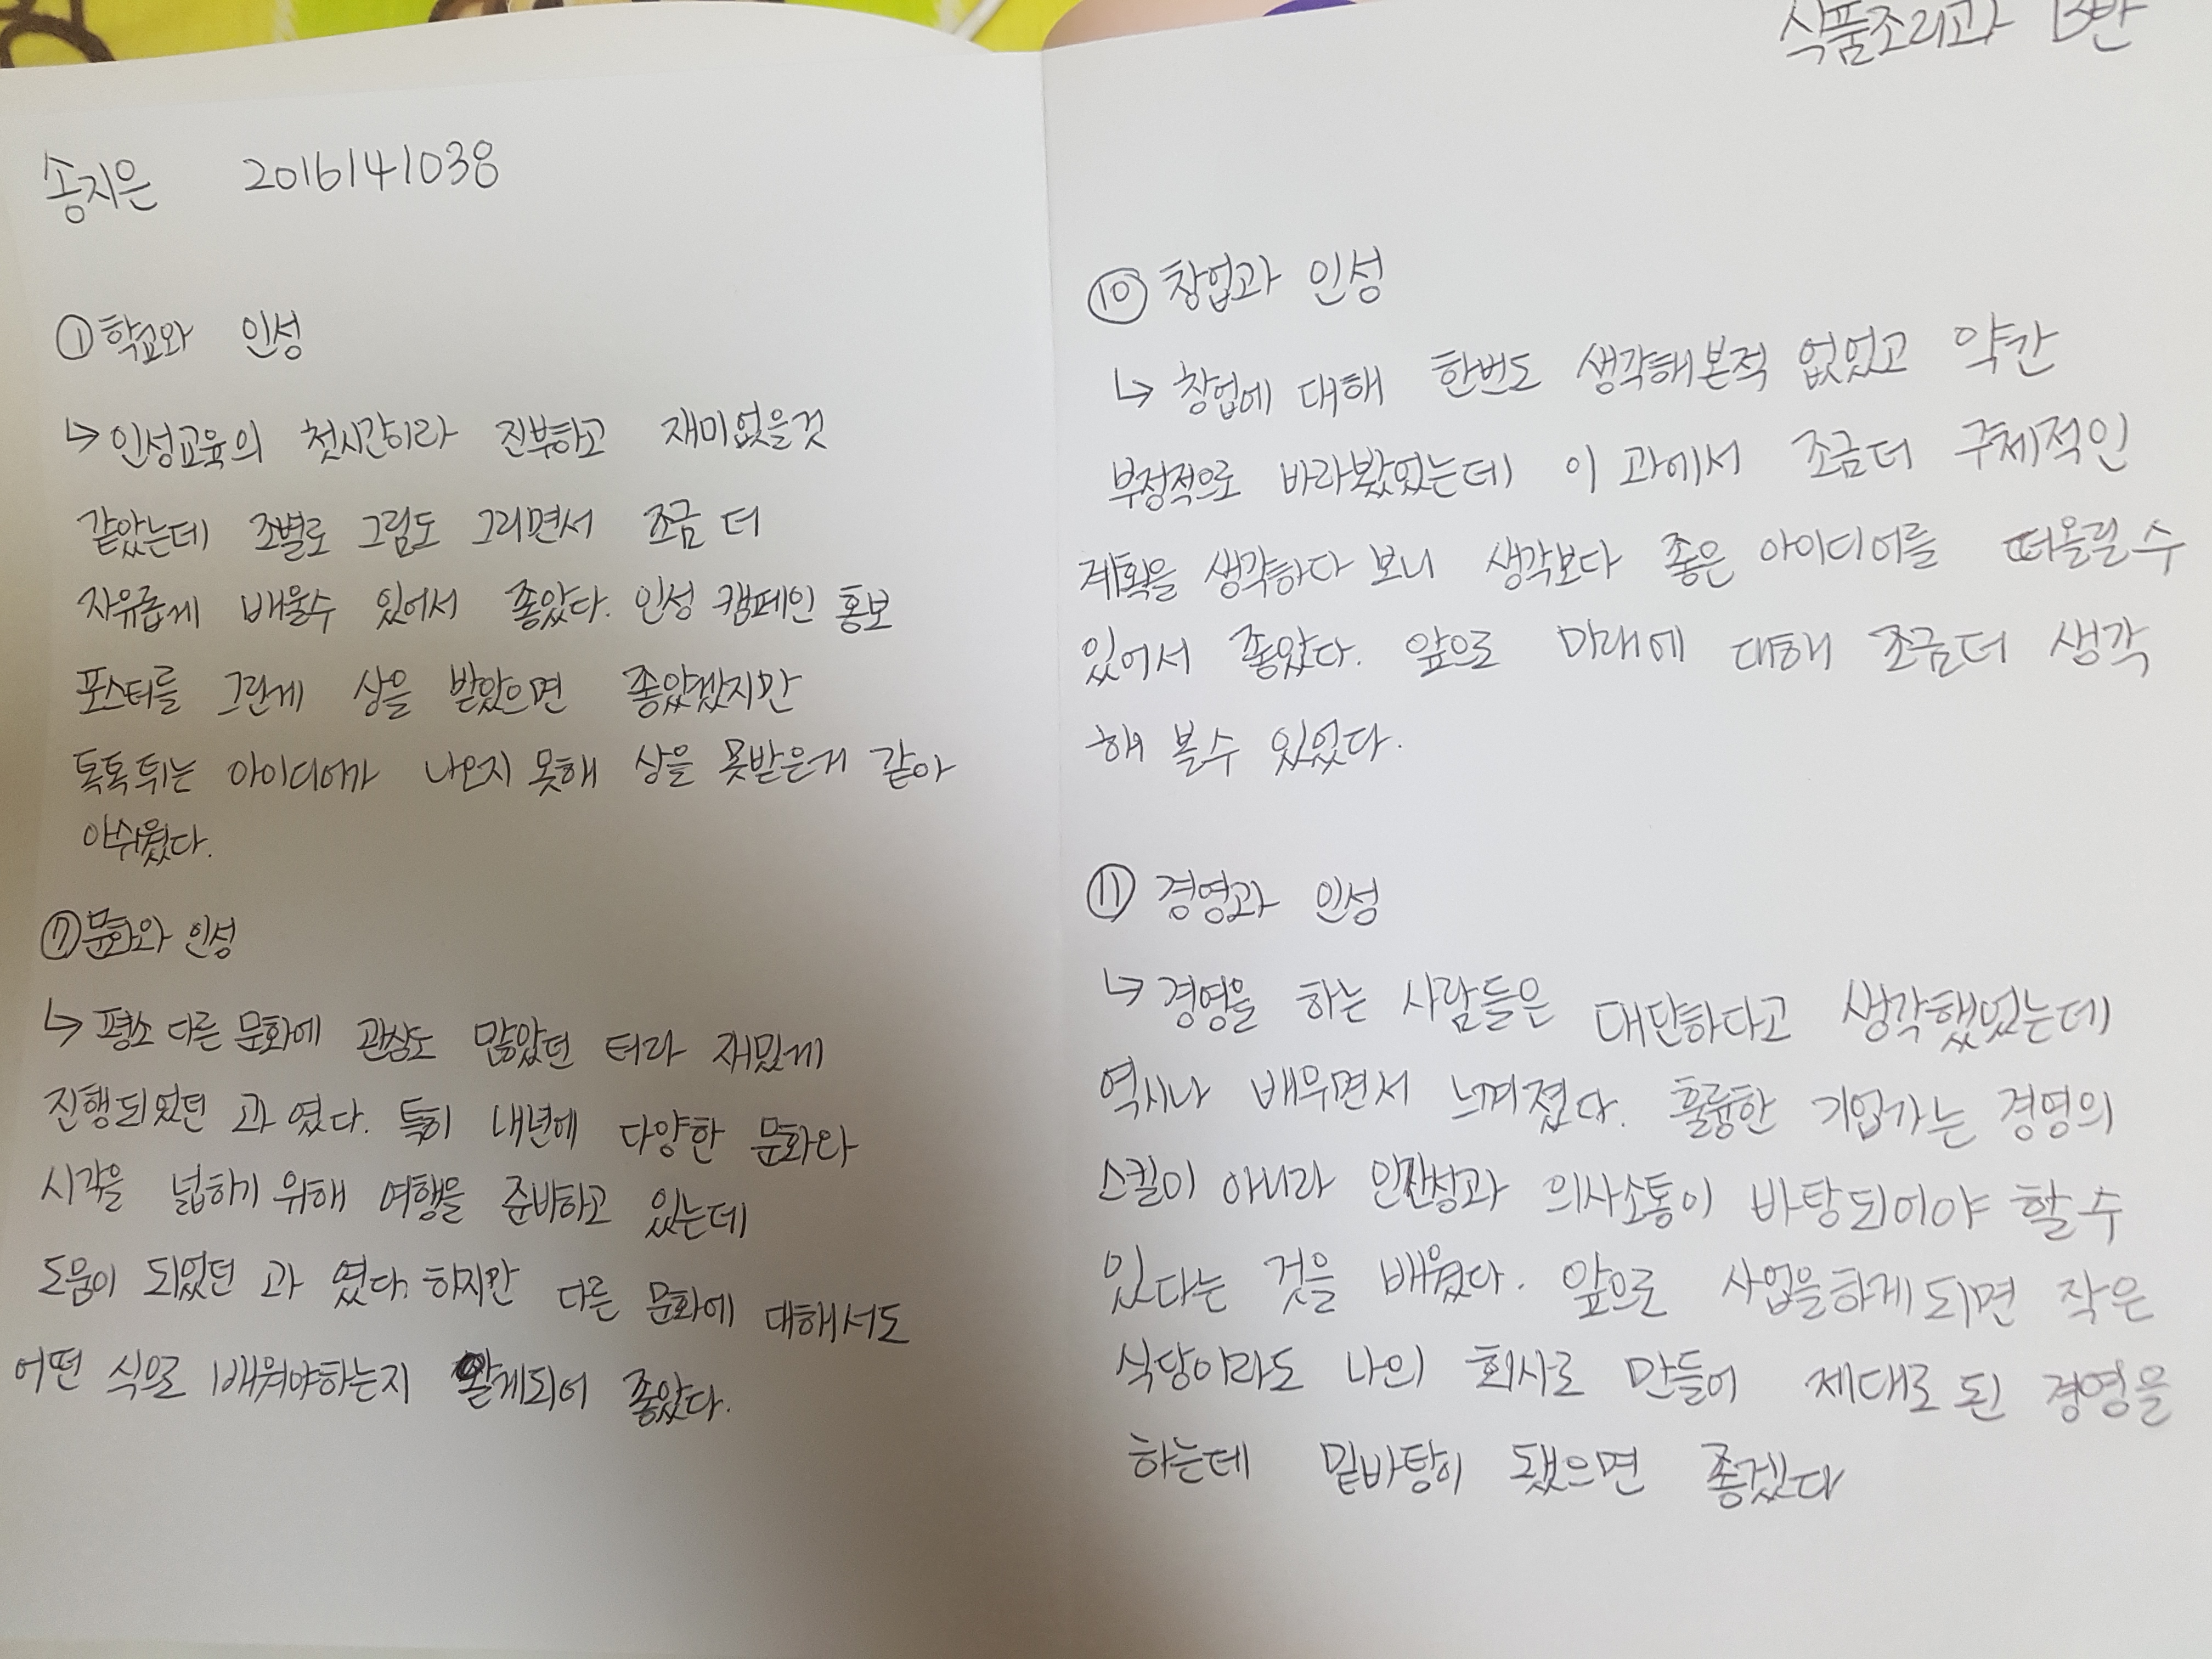 식품조리과 B반
송지은 2016141038
① 학교와 인성
↳ 인성교육의 첫시간이라 진부하고 재미없을것
같았는데 조별로 그림도 그리면서 조금 더
자유롭게 배울수 있어서 좋았다. 인성 캠페인 홍보
포스터를 그린게 상을 받았으면 좋았겠지만
톡톡튀는 아이디어가 나오지 못해 상을 못받은게 같아
아쉬웠다.
⑦ 문화와 인성
↳ 평소 다른 문화에 관심도 많았던 터라 재밌게
진행되었던 과 였다. 특히 내년에 다양한 문화와
시각을 넓히기 위해 여행을 준비하고 있는데
도움이 되었던 과 였다. 하지만 다른 문화에 대해서도
어떤 식으로 배워야하는지 알게되어 좋았다.
⑩ 창업과 인성
↳ 창업에 대해 한번도 생각해본적 없었고 약간
부정적으로 바라봤었는데 이 과에서 조금더 구체적인
계획을 생각하다 보니 생각보다 좋은 아이디어를 떠올릴수
있어서 좋았다. 앞으로 미래에 대해 조금더 생각
해 볼수 있었다.
⑪ 경영과 인성
↳ 경영을 하는 사람들은 대단하다고 생각했었는데
역시나 배우면서 느껴졌다. 훌륭한 기업가는 경영의
스킬이 아니라 의사소통이 바탕되어야 할수
있다는 것을 배웠다. 앞으로 사업을하게되면 작은
식당이라도 나의 회사로 만들어 제대로 된 경영을
하는데 밑바탕이 됐으면 좋겠다